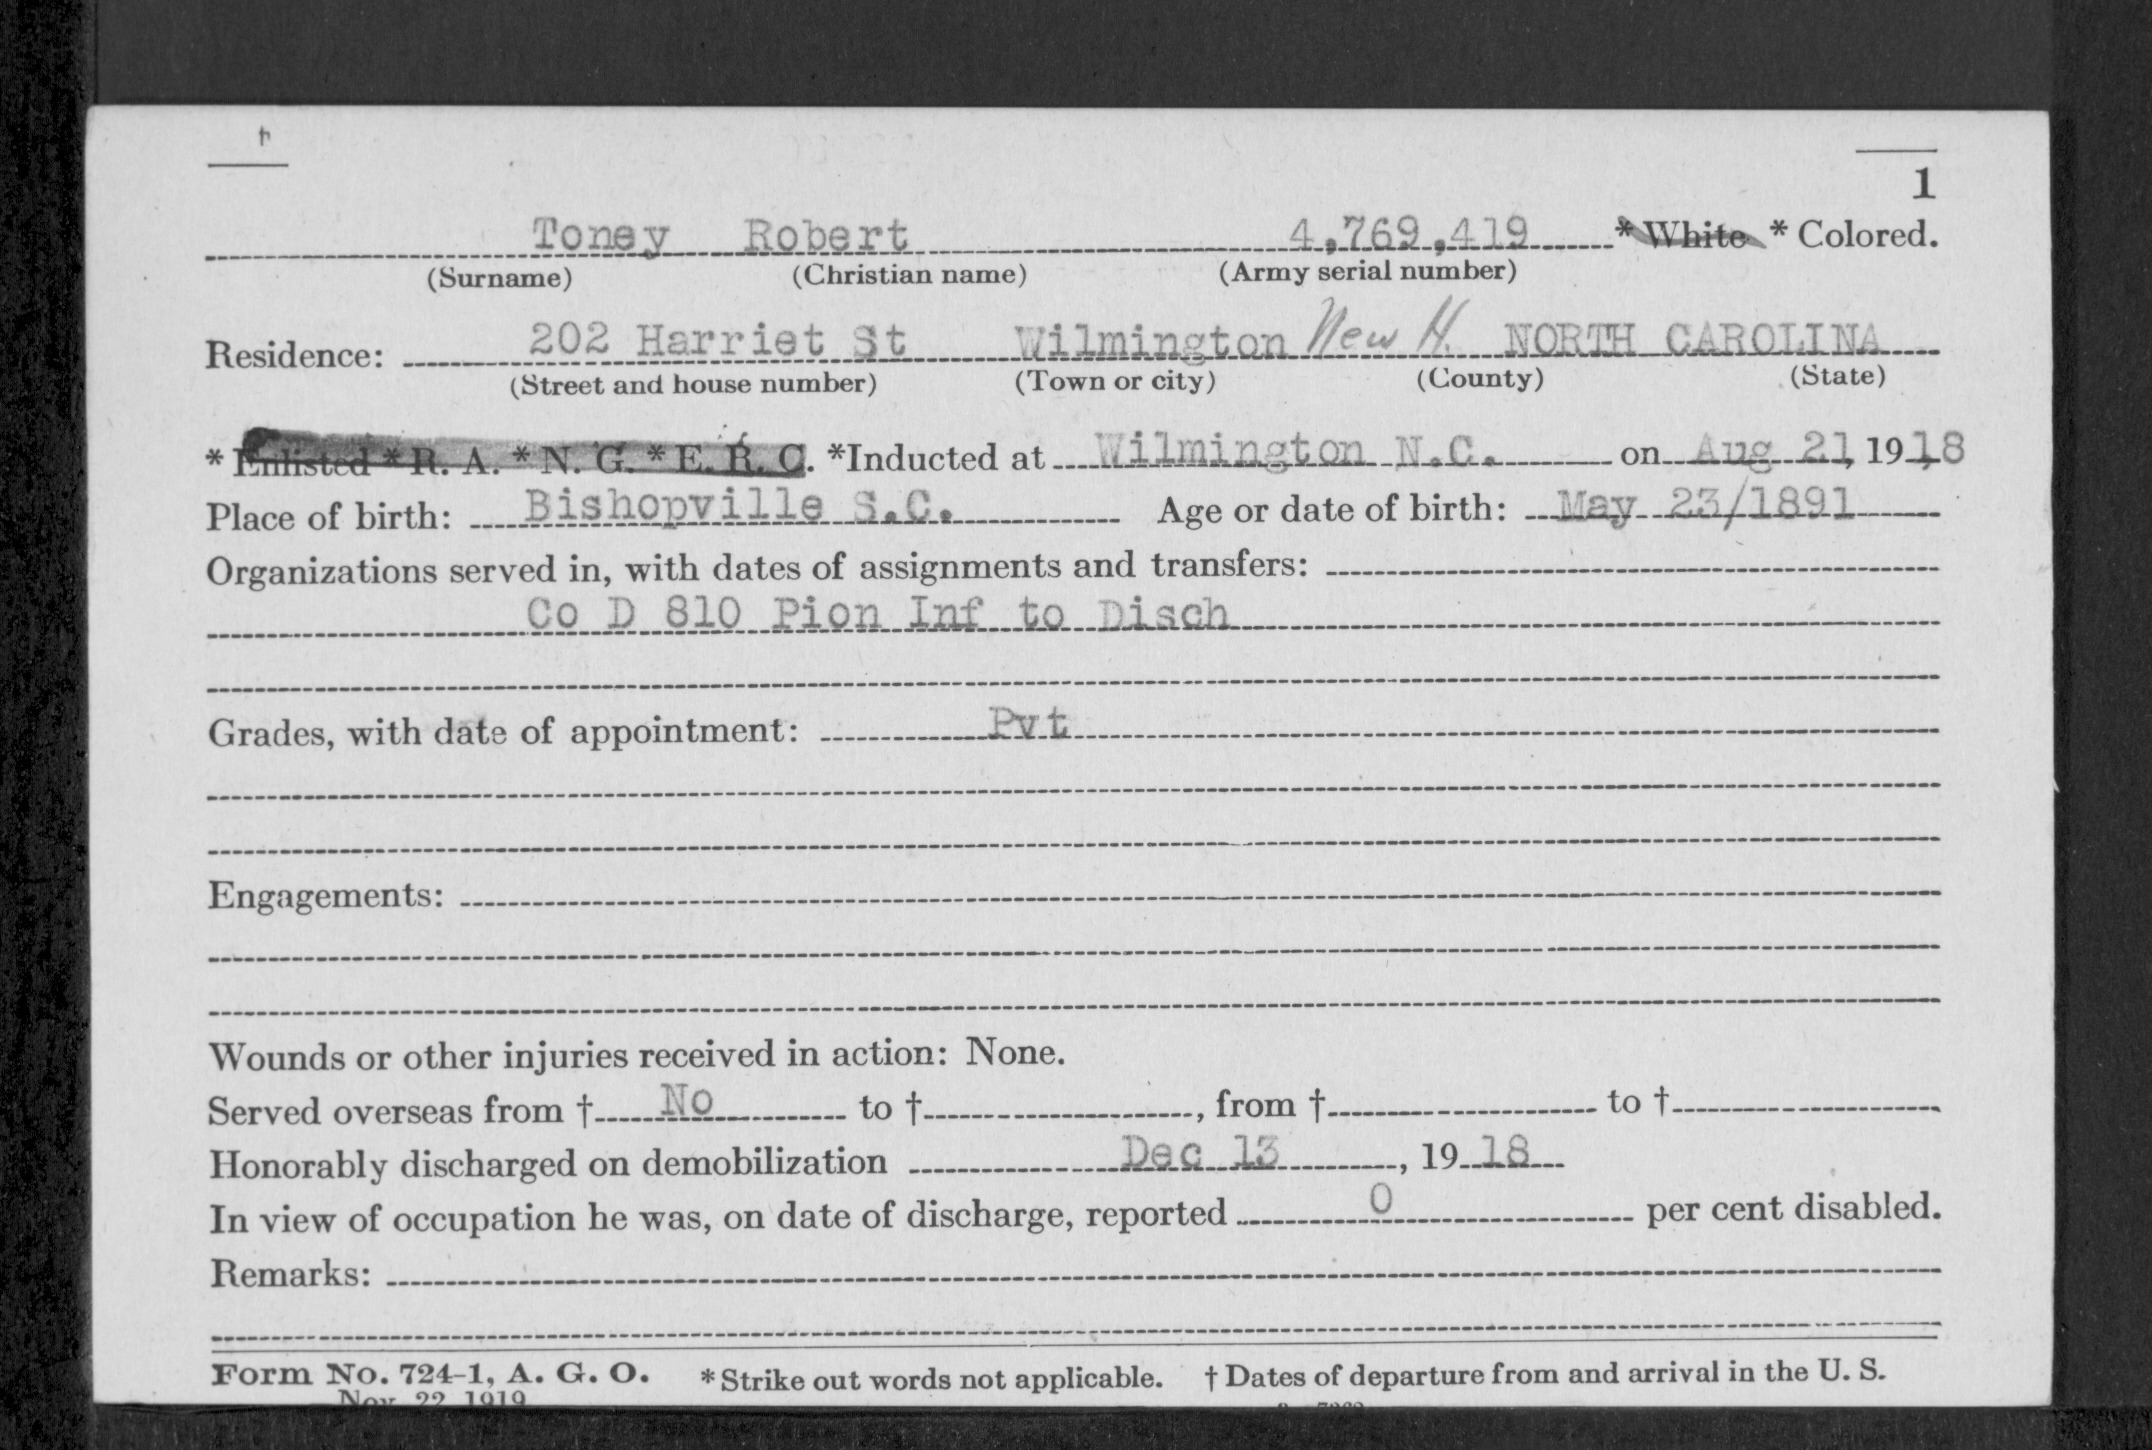 1
Toney Robert 4,769,419 * White * Colored.
(Surname) (Christian name) (Army serial number)
Residence: 202 Harriet St Wilmington New H. NORTH CAROLINA
(Street and house number) (Town or city) (County) (State)
* Enlisted * R. A. * N. G. * E. R. C. *Inducted at Wilmington N.C. on Aug 21, 1918
Place of birth: Bishopville S.C. Age or date of birth: May 23/1891
Organizations served in, with dates of assignments and transfers:
Co D 810 Pion Inf to Disch
Grades, with date of appointment: Pvt
Engagements:
Wounds or other injuries received in action: None.
Served overseas from † No to †, from † to †
Honorably discharged on demobilization Dec 13, 19 18
In view of occupation he was, on date of discharge, reported 0 per cent disabled.
Remarks:
Form No. 724-1, A. G. O. * Strike out words not applicable. † Dates of departure from and arrival in the U. S.
Nov. 22, 1919